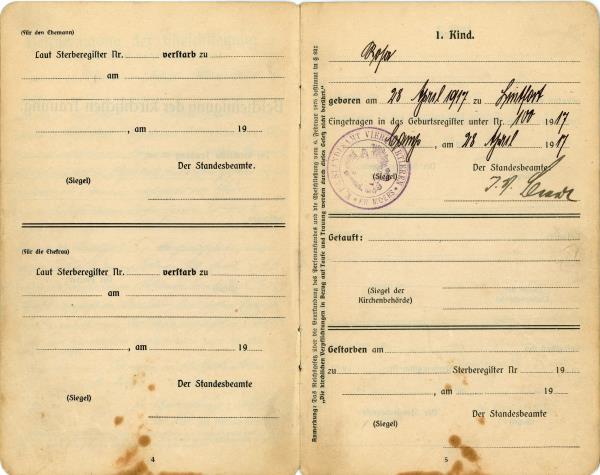 (Für den Ehemann)
Laut Sterberegister Nr. verstarb zu
am
, am 19
Der Standesbeamte.
(Siegel)
(Für die Ehefrau)
Laut Sterberegister Nr. verstarb zu
am
, am 19
Der Standesbeamte
(Siegel)
4
Anmerkung: Das Reichsgesetz über die Beurkundung des Personenstandes und die Eheschließung vom 6. Februar 1875 bestimmt in § 82:
„Die kirchlichen Verpflichtungen in Bezug auf Taufe und Trauung werden durch dieses Gesetz nicht berührt."
1. Kind.
Rosa
geboren am 28 April 1917 zu Lintfort
Eingetragen in das Geburtsregister unter Nr. 100 1917
Camp, am 28 April 1917
STANDESAMT VIERQUARTIEREN
KR. MOERS
Der Standesbeamte
(Siegel)
I.V.
Getauft:
(Siegel der
Kirchenbehörde)
Gestorben am
zu Sterberegister Nr 19
, am 19
Der Standesbeamte
(Siegel)
5